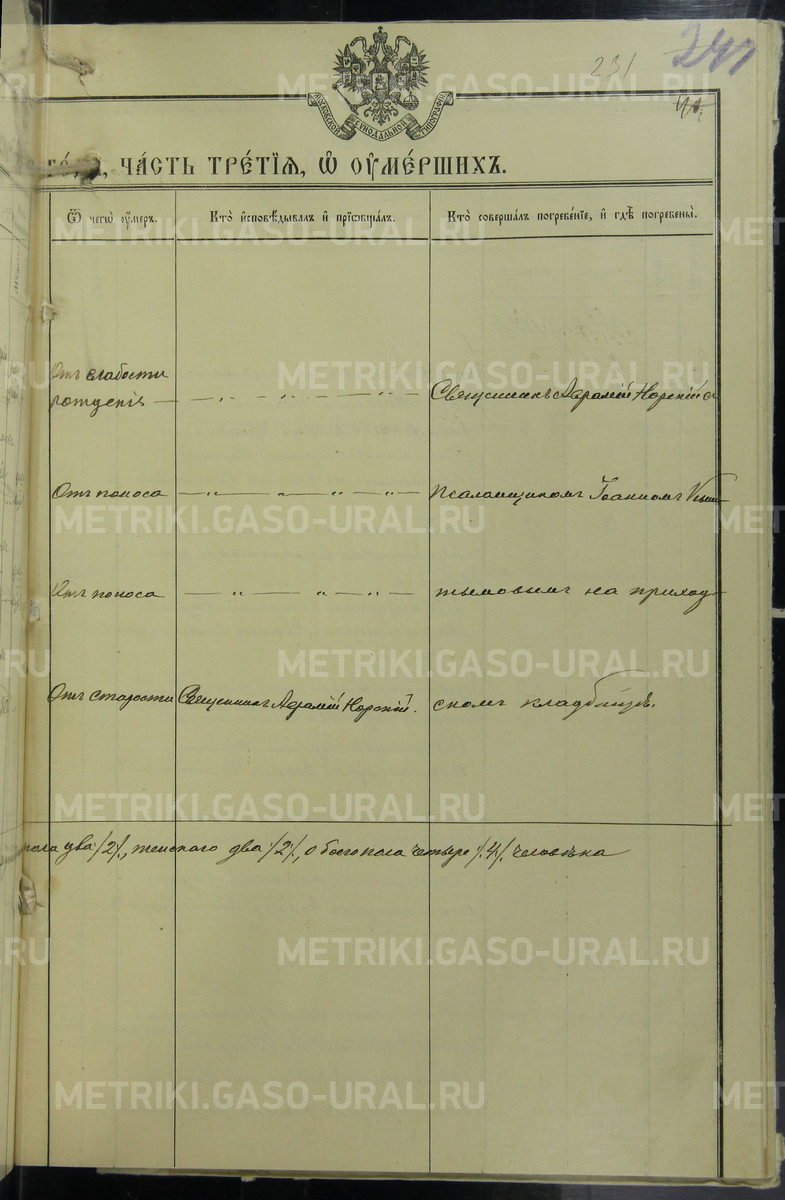 231
241
МОСКОВСКОЙ СѴНОДАЛЬНОЙ ТИПОГРАФІИ
ЧА́СТЬ ТРЕ́ТІѦ, Ѡ҆ ОУ҆МЕ́РШИХЪ.
Ѿ чегѡ̀ оу҆́меръ.
Кто̀ и҆сповѣ́дывалъ и҆ прїѡбща́лъ.
Кто̀ соверша́лъ погребе́нїе, и҆ гдѣ̀ погребены̀.
Отъ слабости
рожденія — „ — „ — „ —
Священникъ Аврамій Норскій съ
Отъ поноса — „ — „ — „ — „ —
псаломщикомъ Іоанномъ
Отъ поноса — „ — „ — „ —
тымовымъ на приход
Отъ старости
Священникъ Аврамій Норскій.
скомъ кладбищѣ.
пола два /2/, женскаго два /2/, обоего пола четыре /4/ человѣка
METRIKI.GASO-URAL.RU